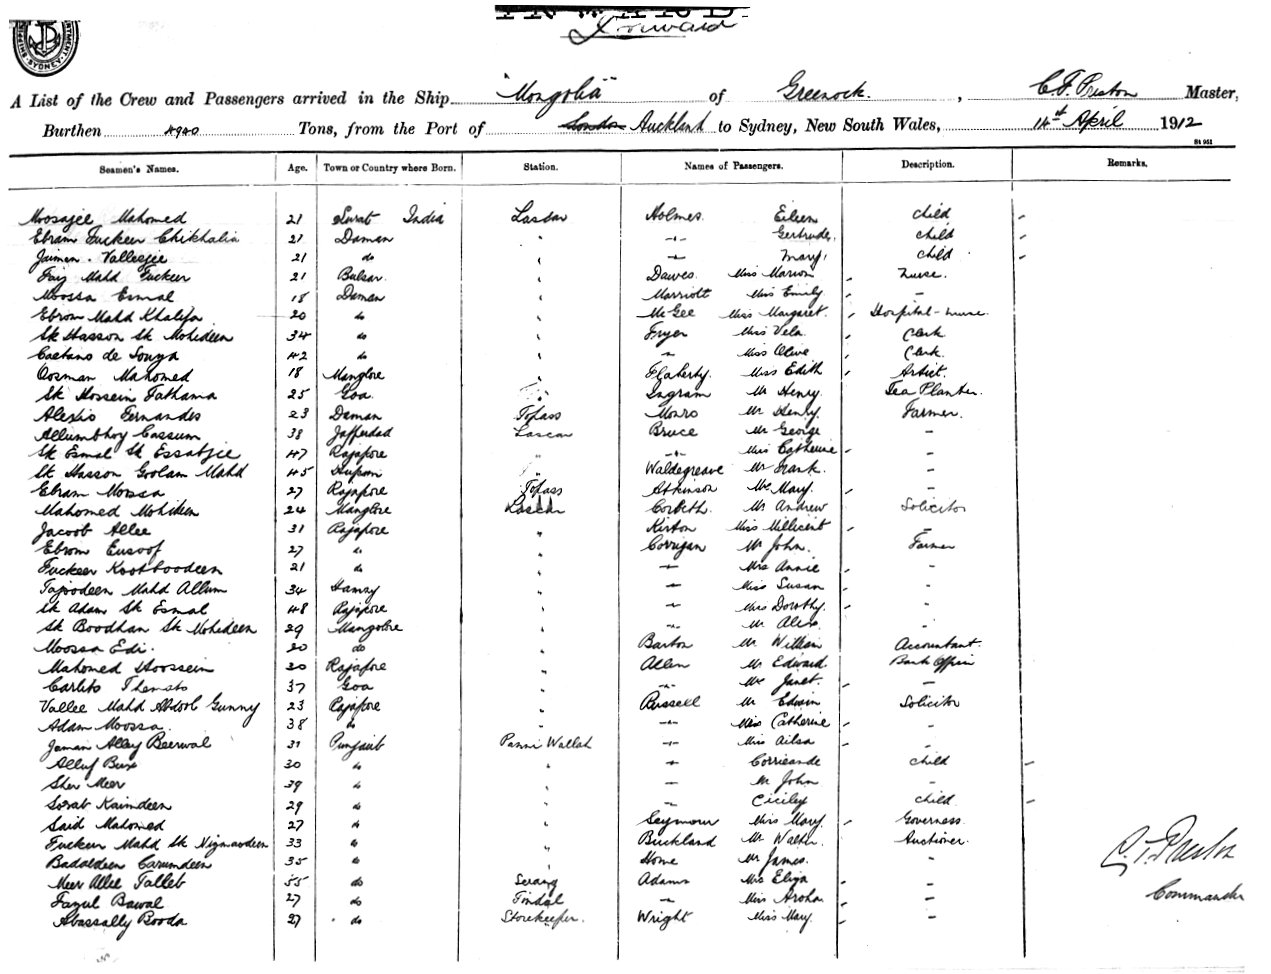 INWARD
Forward
SYDNEY
A List of the Crew and Passengers arrived in the Ship "Mongolia" of Greenock, C F Preston Master,
Burthen 4940 Tons, from the Port of London Auckland to Sydney, New South Wales, 14th April 1912
St 951
Seamen's Names. Age. Town or Country where Born. Station. Names of Passengers. Description. Remarks.
Moosajee Mahomed 21 Surat India Lascar Holmes. Eileen child
Ebram Fuckeer Chikhalia 21 Daman " Gertrude, child
Jaiman Vallejee 21 do " Mary, child
Faiz Mahd Fuckeer 21 Bulsar " Dawes. Miss Marion Nurse.
Moossa Esmal 18 Daman " Marriott Miss Emily -
Ebrom Mahd Khalifa 20 do " McGee Miss Margaret. Hospital-nurse.
Sk Hasson Sk Mohideen 34 do " Fryer Miss Vela Clerk
Caetano de Souza 42 do " " Miss Olive Clerk.
Oosman Mahomed 18 Manglore " Flaherty. Miss Edith Artist.
Sk Hossein Fathama 25 Goa " Ingram Mr Henry. Tea Planter.
Alexio Fernandes 23 Daman Topass Monro Mr Henry. Farmer.
Allumbhoy Cassum 38 Jafferdad Lascar Bruce Mr George -
Sk Esmal Sk Essabjee 47 Rajapore " Miss Catherine -
Sk Hasson Goolam Mahd 45 " Waldegrave Mr Frank. -
Ebram Moossa 27 Rajapore Topass Atkinson Mrs Mary. -
Mahomed Mohideen 24 Manglore Lascar Corbeth. Mr Andrew Solicitor
Jacoob Allee 31 Rajapore " Kirton Miss Millicent -
Ebrom Eusoof 27 do " Corrigan Mr John. Farmer
Fuckeer Kootboodeen 21 do " Mrs Annie -
Tajoodeen Mahd Allum 34 " Miss Susan -
Sk Adam Sk Esmal 48 Rajapore " Miss Dorothy. -
Sk Boodhan Sk Mohideen 29 Mangolore " -
Moossa Edi. 20 do " Barton Mr William Accountant.
Mahomed Hoossein 20 Rajapore " Allen Mr Edward Bank Officer
Carlito 37 Goa " Mrs Janet. -
Vallee Mahd Abdool Gunny 23 Rajapore " Russell Mr Edwin Solicitor
Adam Moossa. 38 do " Miss Catherine -
Jaman Alley Beerwal 31 Punjaub Panni Wallah Miss Ailsa -
Alluf Bux 30 do " child
Sher Meer 39 do " Mr John -
Sorab Kaimdeen 29 do " Ciciley child.
Said Mahomed 27 do " Seymour Miss Mary. Governess.
Fuckeer Mahd Sk Nizmaodeen 33 do " Buckland Mr Walter. Auctioner.
Badaldeen Carumdeen 35 do " Home Mr James. -
Meer Allee Talleb 55 do Serang Adams Mrs Eliza -
Fazul Bawal 27 do Tindal Miss Aroha -
Abassally Booda 27 do Storekeeper. Wright Miss Mary. -
C. F. Preston
Commander